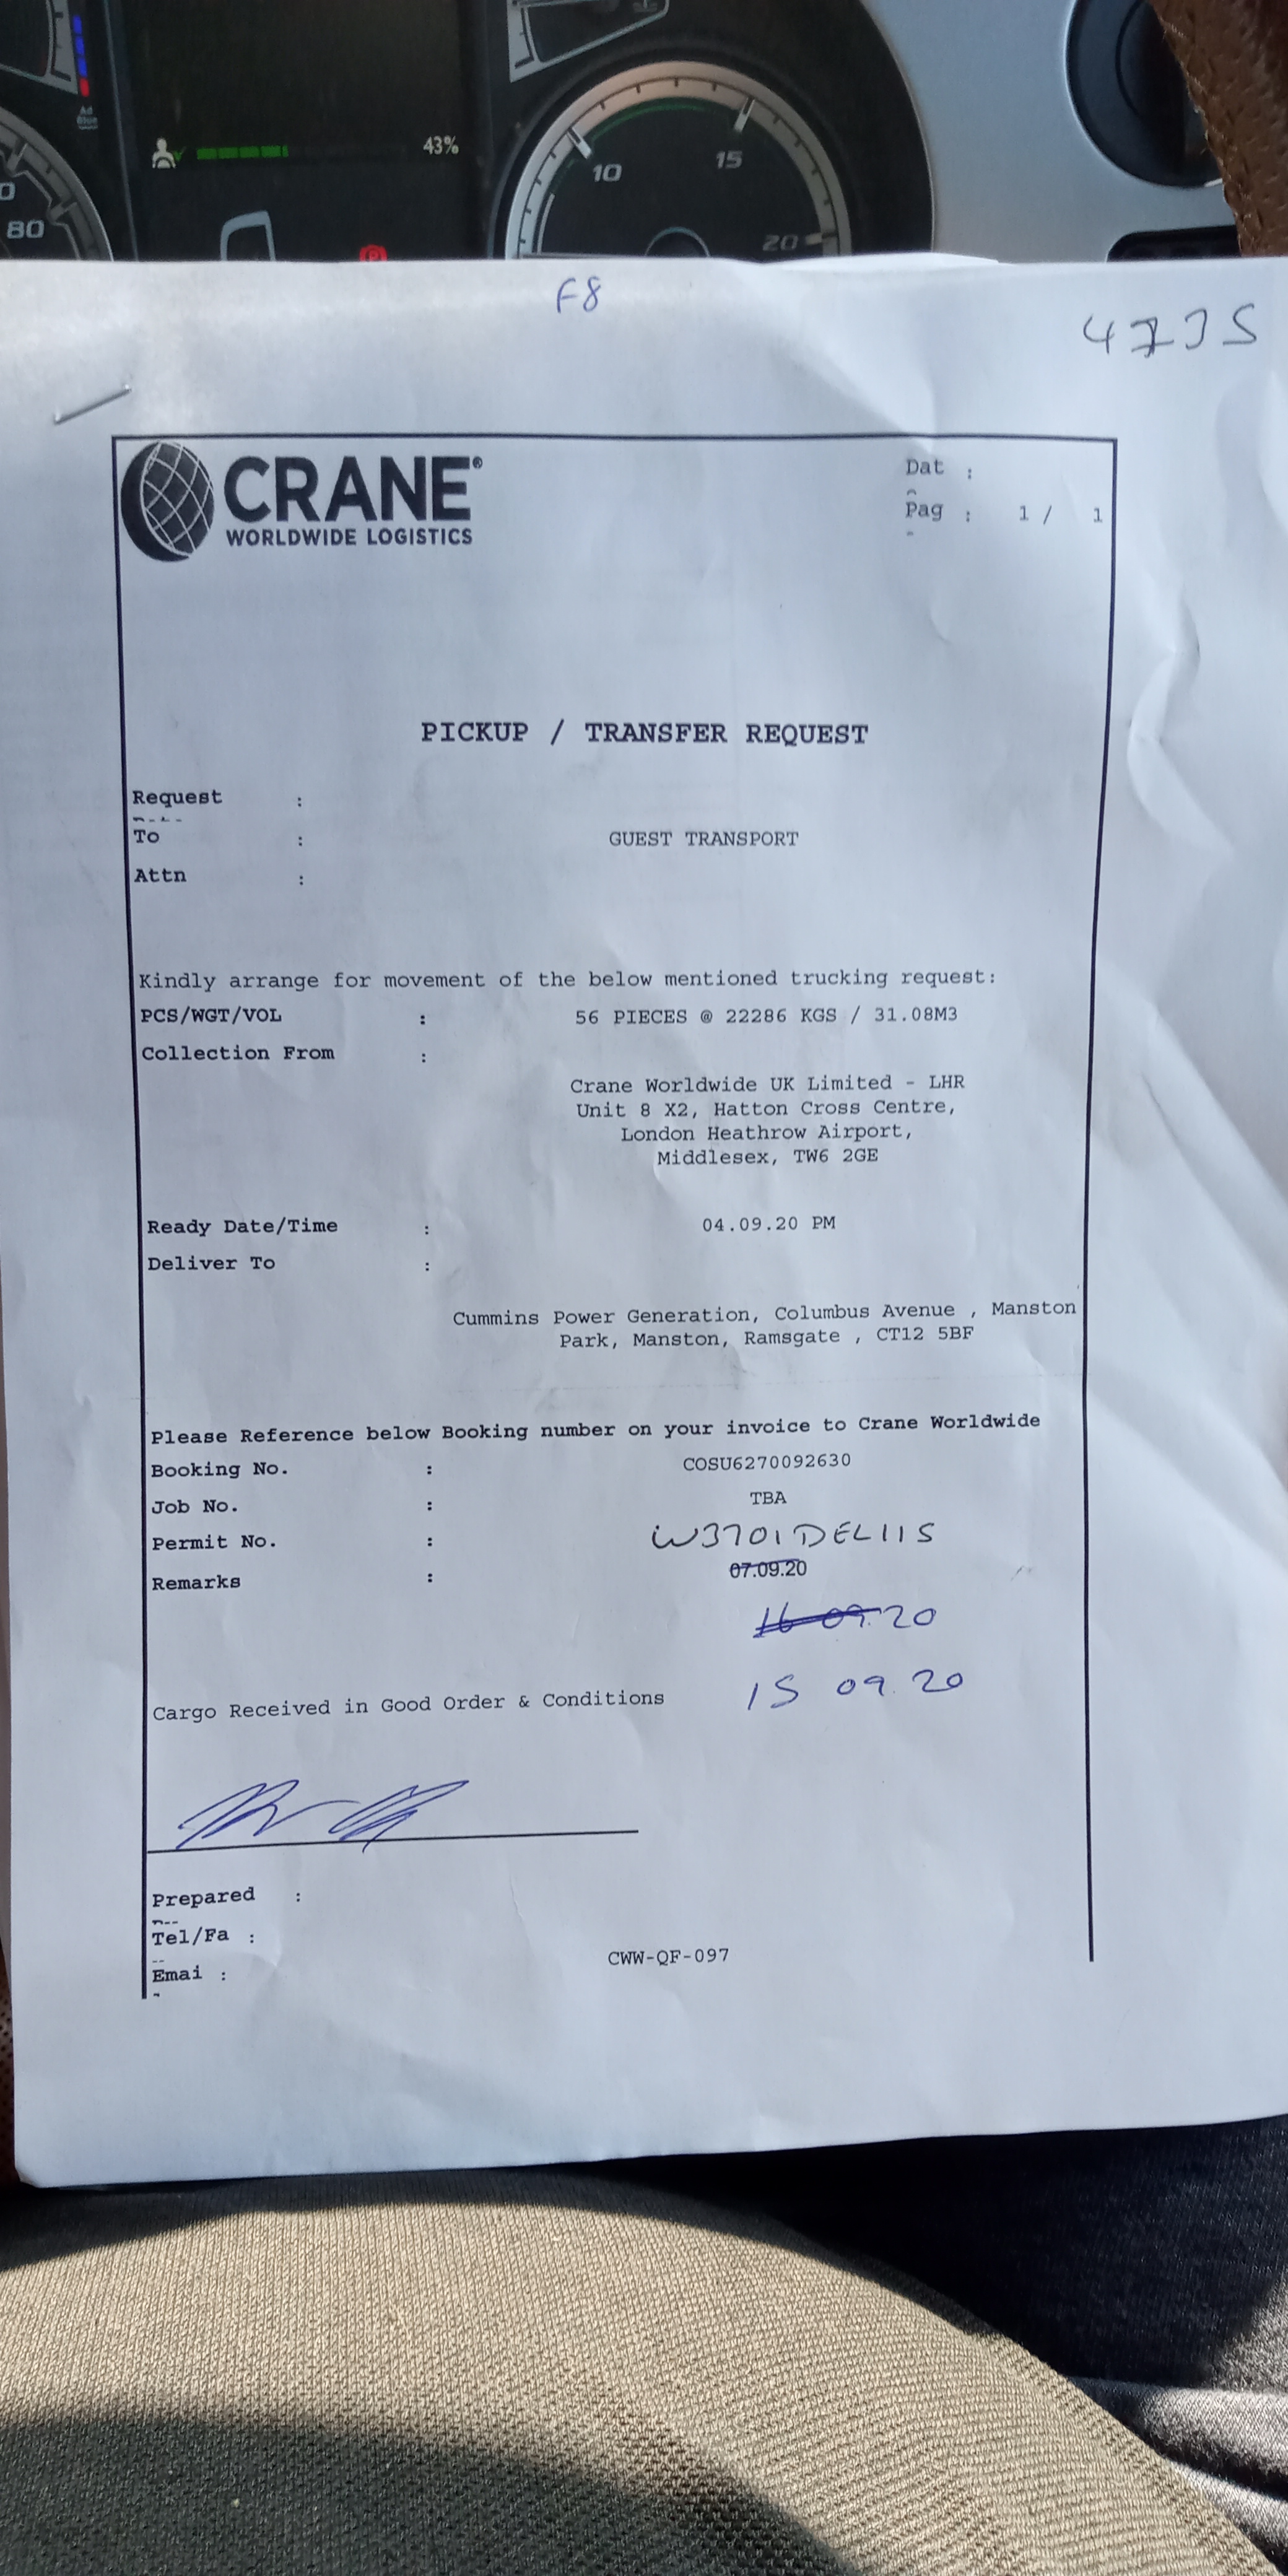 Ad
Blue
43%
10
15
20
80
F8
CRANE®
WORLDWIDE LOGISTICS
Dat :
Pag : 1 / 1
PICKUP / TRANSFER REQUEST
Request :
To : GUEST TRANSPORT
Attn :
Kindly arrange for movement of the below mentioned trucking request:
PCS/WGT/VOL : 56 PIECES @ 22286 KGS / 31.08M3
Collection From :
Crane Worldwide UK Limited - LHR
Unit 8 X2, Hatton Cross Centre,
London Heathrow Airport,
Middlesex, TW6 2GE
Ready Date/Time : 04.09.20 PM
Deliver To :
Cummins Power Generation, Columbus Avenue , Manston
Park, Manston, Ramsgate , CT12 5BF
Please Reference below Booking number on your invoice to Crane Worldwide
Booking No. : COSU6270092630
Job No. : TBA
Permit No. : W3701DEL115
Remarks : 07.09.20
16 09.20
15 09.20
Cargo Received in Good Order & Conditions
Prepared :
Tel/Fa :
Emai :
CWW-QF-097